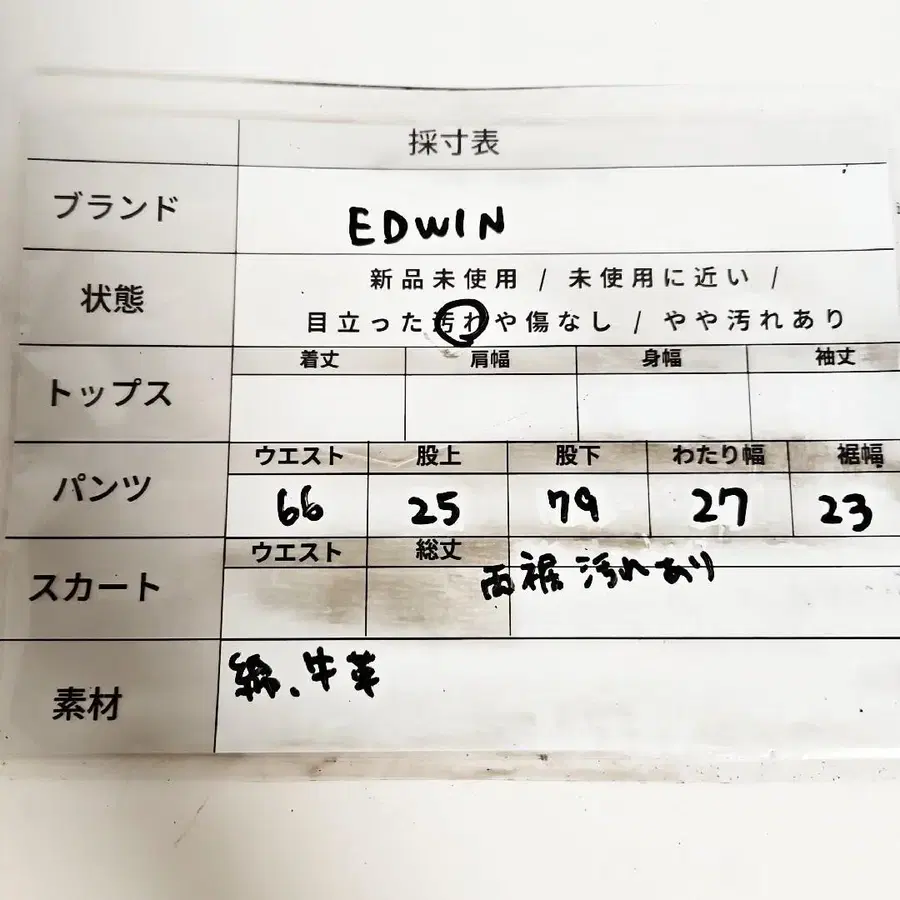 採寸表
ブランド
EDWIN
状態
新品未使用 / 未使用に近い /
目立った汚れや傷なし / やや汚れあり
トップス
着丈 肩幅 身幅 袖丈
パンツ
ウエスト 股上 股下 わたり幅 裾幅
66 25 79 27 23
スカート
ウエスト 総丈
両裾汚れあり
素材
綿、牛革